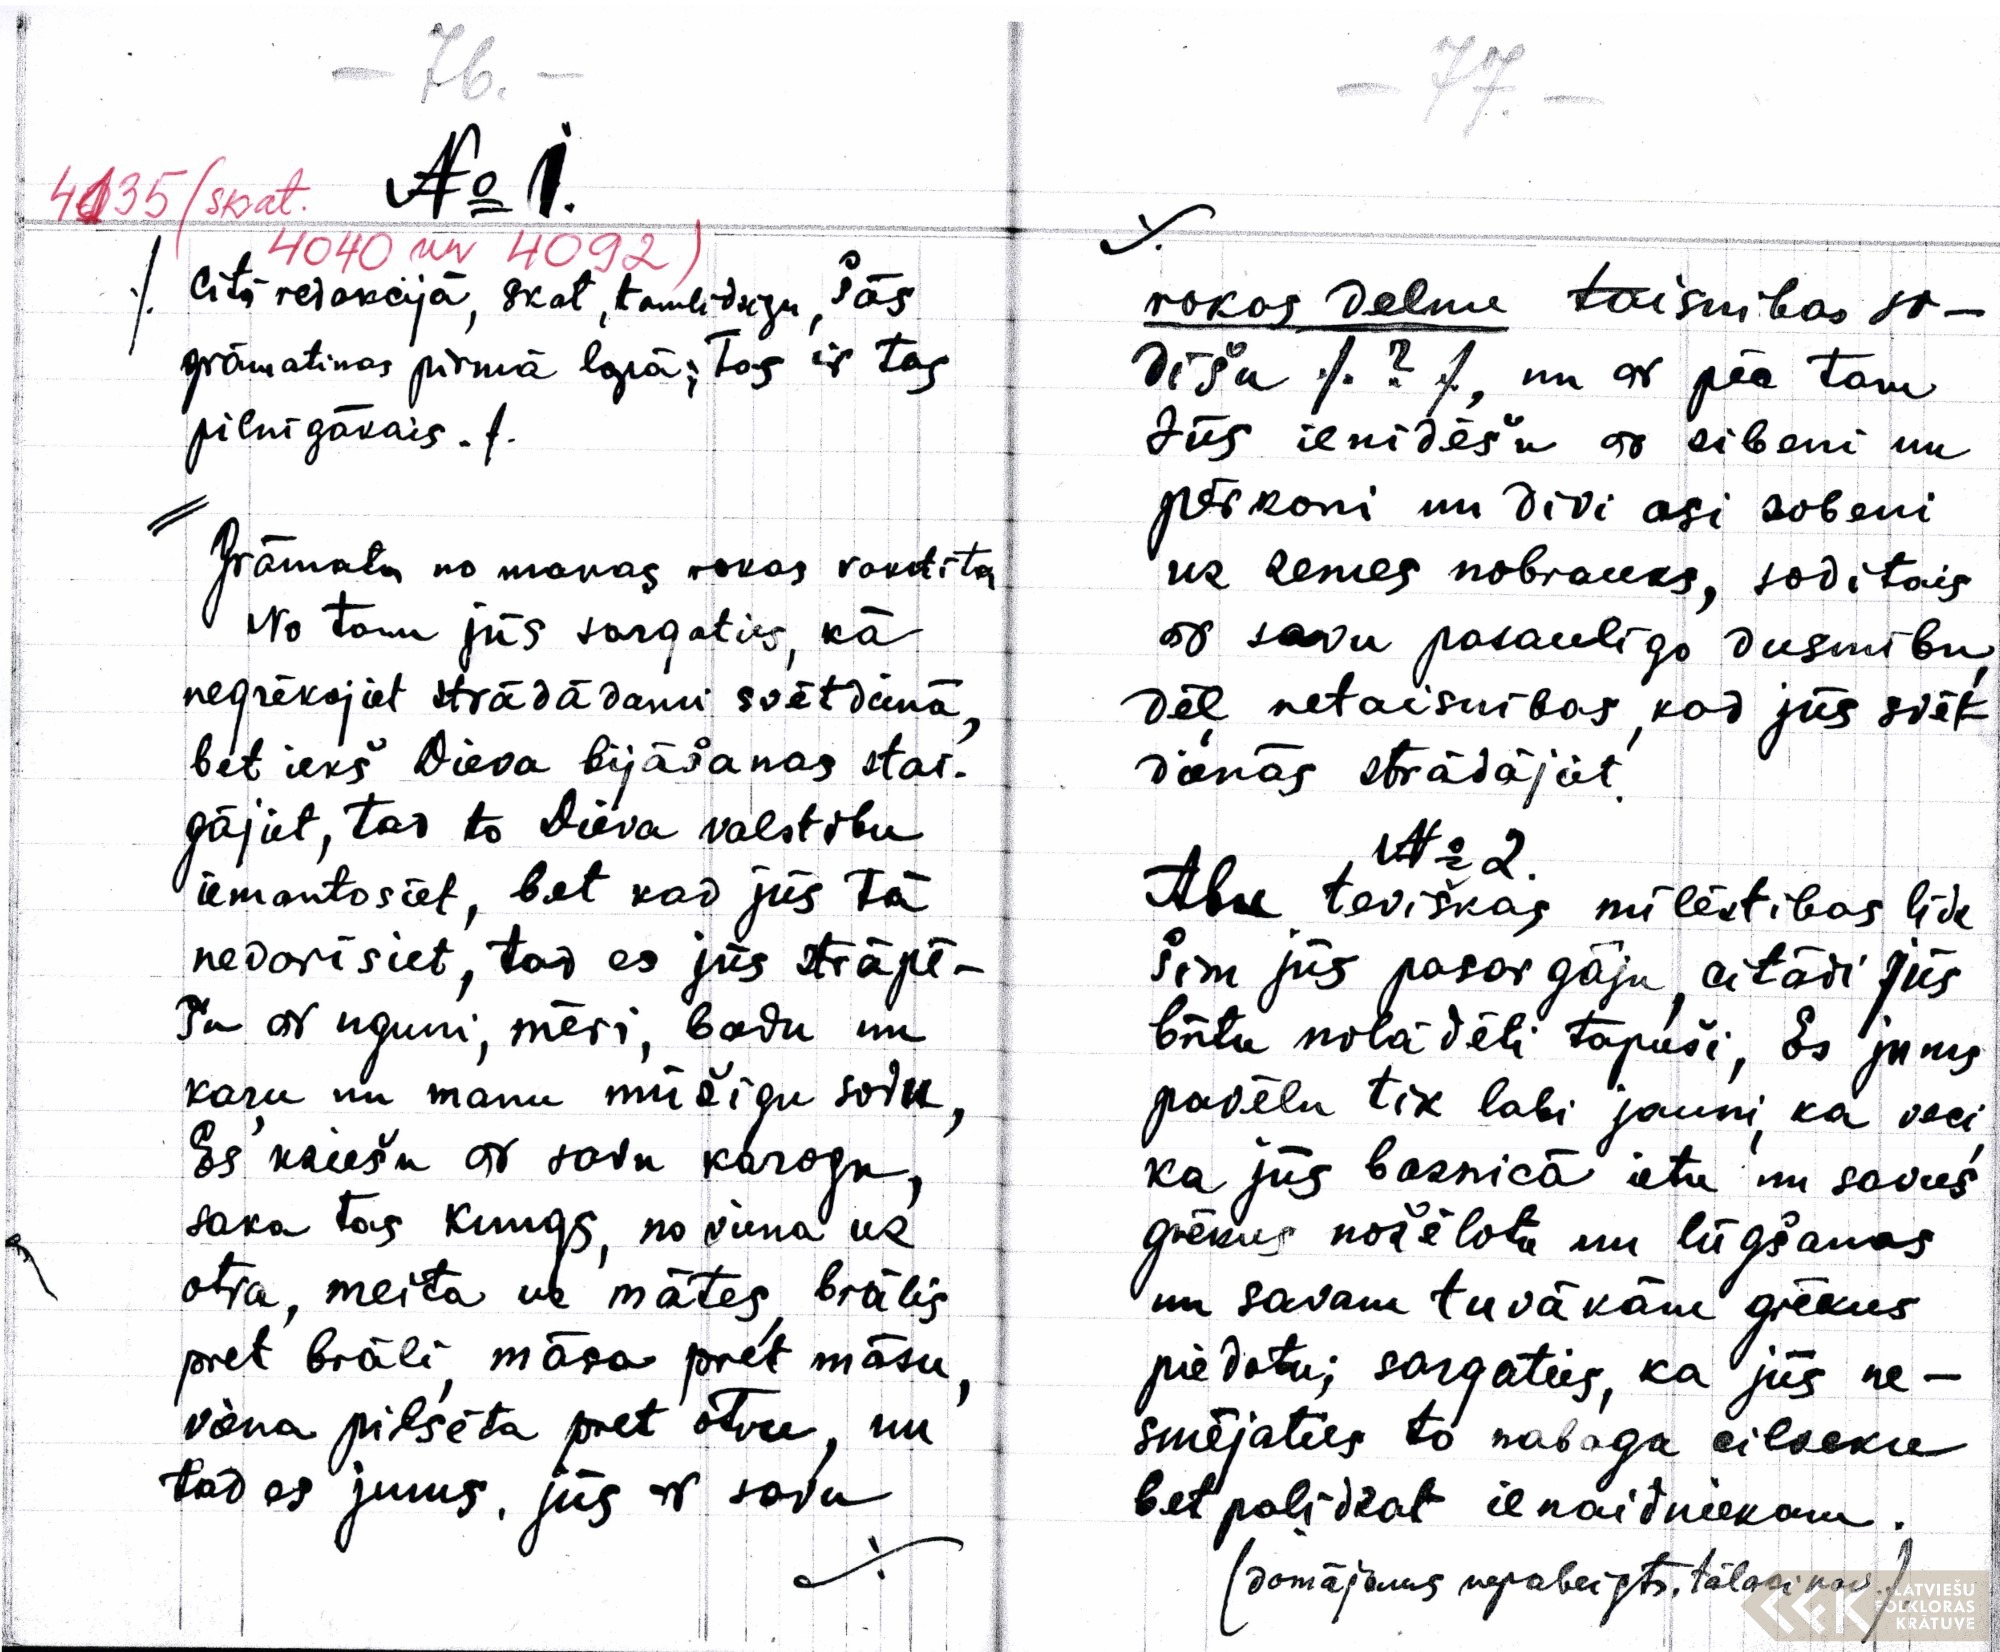 – 76. –
№ 1.
4135 (skat.
4040 un 4092)
·/. Citā redakcijā, skat, tamlīdzīgu, šās
grāmatiņas pirmā lapā; Tas ir tas
pilnīgākais ./.
Grāmata no manas rokas rakstīta
No tam jūs sargaties, kā
negrēkojiet strādādami svētdienā,
bet iekš Dieva bijāšanas stai-
gājiet, tad to Dieva valstību
iemantosiet, bet kad jūs tā
nedarīsiet, tad es jūs strāpē-
šu ar uguni, mēri, badu un
karu un manu mūžīgu sodu,
Es kliešu ar savu karogu,
saka tas kungs, no viena uz
otra, meita uz mātes, brālis
pret brāli, māsa pret māsu,
viena pilsēta pret otru, un
tad es jums, jūs ar savu
·/.
– 77. –
·/.
rokas delmu taisnības so-
dīšu /. ? /., un ar pēc tam
Jūs ienīdēšu ar zibeni un
pērkoni un divi asi zobeni
uz zemes nobrauks, soditais
ar savu pasauligo dusmibu,
dēļ netaisnibas, kad jūs svēt-
dienās strādājiet.
№ 2.
Abu teviškas mīlēstibas līdz
šim jūs pasargāju, citādi jūs
būtu nolādēti tapuši, Es jums
pavēlu tik labi jauni, ka veci,
ka jūs baznicā ietu un savus
grēkus nožēlotu un lūgšanas
un savam tuvākām grēkus
piedotu; sargaties, ka jūs ne-
smējaties to nabagu cilveku
bet palīdzat ienaidniekam.
(domājams nepabeigts, tālāki nav.)
LATVIEŠU
FOLKLORAS
KRĀTUVE